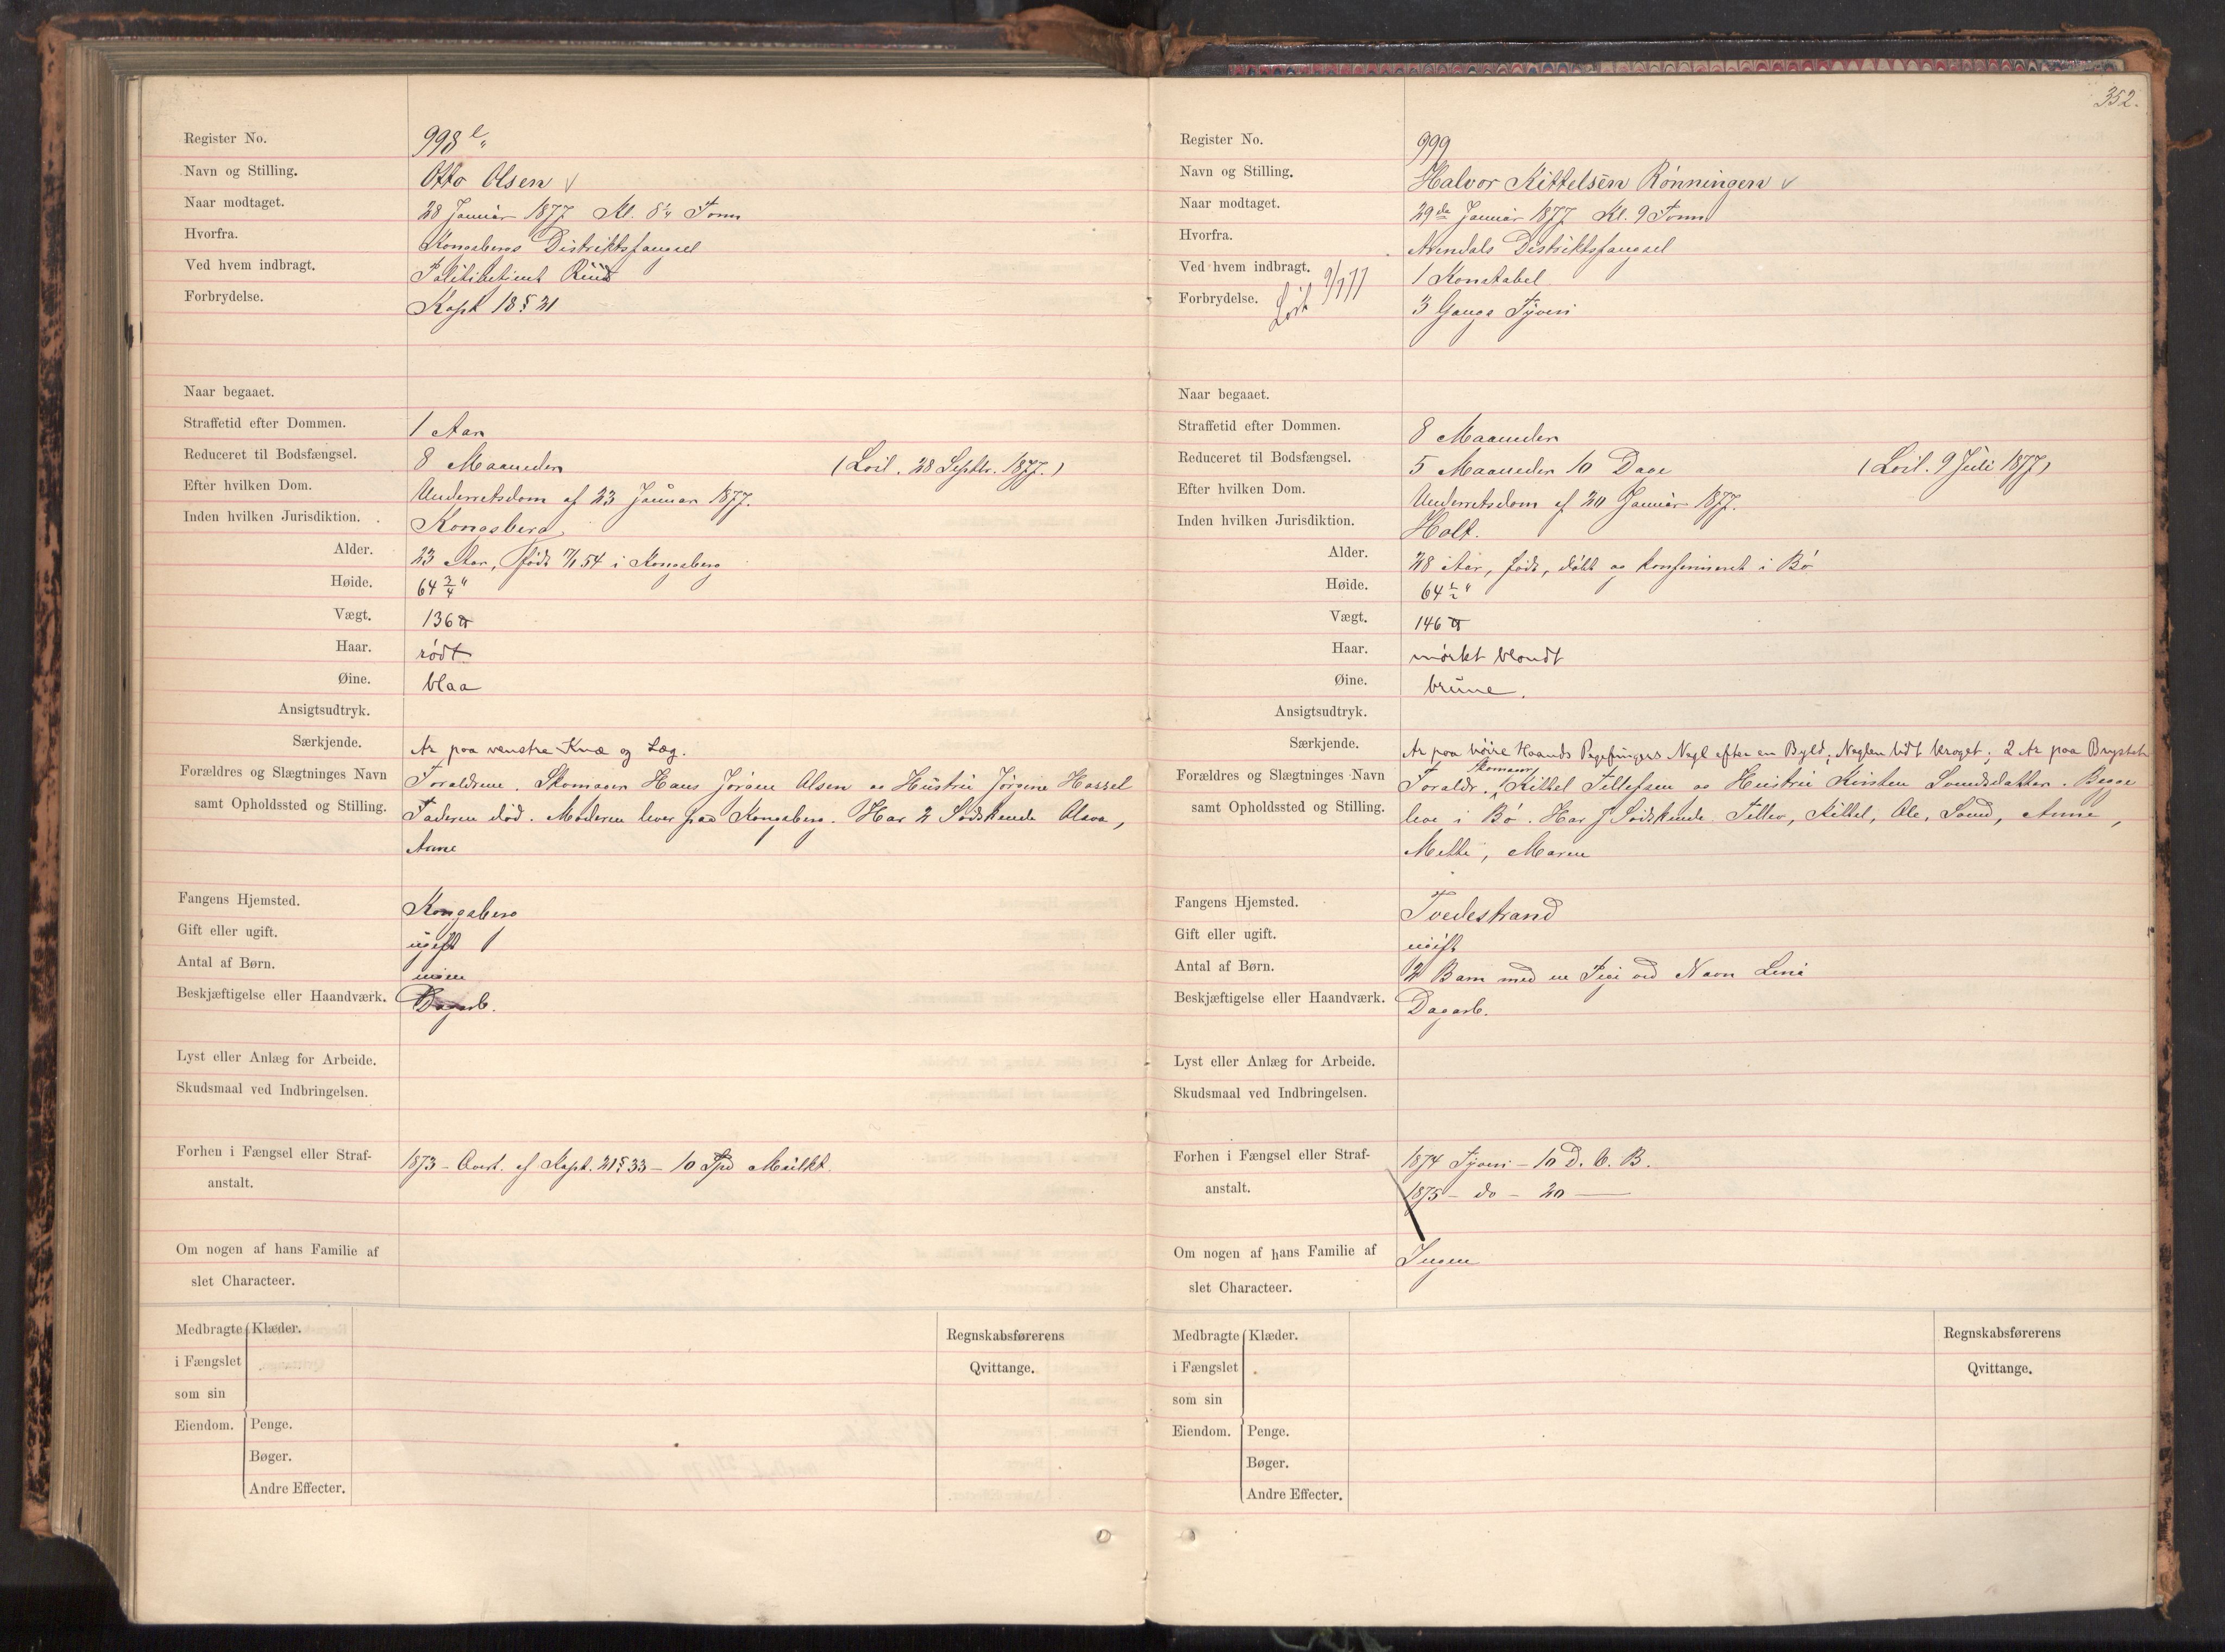 Register No. 998
Navn og Stilling. Otto Olsen
Naar modtaget. 28 Januar 1877 Kl. 8¼ Form
Hvorfra. Kongsbergs Distriktsfængsel
Ved hvem indbragt. Politibetjent Ruud
Forbrydelse. Kapt 18 § 21
Naar begaaet.
Straffetid efter Dommen. 1 Aar
Reduceret til Bodsfængsel. 8 Maaneder (Lösl. 28 Septbr. 1877.)
Efter hvilken Dom. Underretsdom af 23 Januar 1877.
Inden hvilken Jurisdiktion. Kongsberg
Alder. 23 Aar, född 54 i Kongsberg
Høide. 64 2/4"
Vægt. 136 ℔
Haar. rödt
Øine. blaa
Ansigtsudtryk.
Særkjende. Ar paa venstre Knæ og Læg.
Forældres og Slægtninges Navn Forældrene. Skomager Hans Jörgen Olsen og Hustru Jörgine Hassel
samt Opholdssted og Stilling. Faderen död. Moderen lever paa Kongsberg. Har 2 Södskende Olava,
Anne
Fangens Hjemsted. Kongsberg
Gift eller ugift. ugift
Antal af Børn. ingen
Beskjæftigelse eller Haandværk. Dagarb.
Lyst eller Anlæg for Arbeide.
Skudsmaal ved Indbringelsen.
Forhen i Fængsel eller Straf- 1873 - Overt. af Kapt. 21 § 33 - 10 Spd Mulkt.
anstalt.
Om nogen af hans Familie af
slet Characteer.
Medbragte Klæder. Regnskabsførerens
i Fængslet Qvittange.
som sin
Eiendom. Penge.
Bøger.
Andre Effecter.
352.
Register No. 999
Navn og Stilling. Halvor Kittelsen Rönningen
Naar modtaget. 29de Januar 1877 Kl. 9 Form
Hvorfra. Arendals Distriktsfængsel
Ved hvem indbragt. 1 Konstabel
Forbrydelse. Lösl 9/7 77 3 Gange Tyveri
Naar begaaet.
Straffetid efter Dommen. 8 Maaneder
Reduceret til Bodsfængsel. 5 Maaneder 10 Dage (Lösl. 9 Juli 1877)
Efter hvilken Dom. Underretsdom af 20 Januar 1877.
Inden hvilken Jurisdiktion. Holt.
Alder. 28 Aar, född, döbt og konfirmeret i Bö
Høide. 64 ½"
Vægt. 146 ℔
Haar. mörkt blondt
Øine. brune.
Ansigtsudtryk.
Særkjende. Ar paa höire Haands Pegefingers Negl efter en Byld; Neglen lidt kroget; 2 Ar paa Brystet
Forældres og Slægtninges Navn Foreldr. Skomager Kittel Tellefsen og Hustru Kirsten Svendsdatter. Begge
samt Opholdssted og Stilling. leve i Bö. Har 7 Södskende Tellev, Kittel, Ole, Svend, Anne,
Mette, Maren
Fangens Hjemsted. Tvedestrand
Gift eller ugift. ugift
Antal af Børn. 2 Barn med en Pige ved Navn Lina
Beskjæftigelse eller Haandværk. Dagarb.
Lyst eller Anlæg for Arbeide.
Skudsmaal ved Indbringelsen.
Forhen i Fængsel eller Straf- 1874 Tyveri - 10 D. V. B.
anstalt. 1875 - do - 20 —
Om nogen af hans Familie af Ingen
slet Characteer.
Medbragte Klæder. Regnskabsførerens
i Fængslet Qvittange.
som sin
Eiendom. Penge.
Bøger.
Andre Effecter.